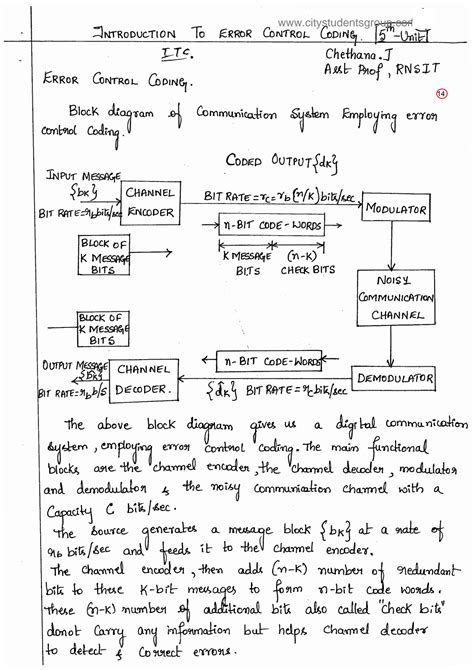 www.citystudentsgroup.com
INTRODUCTION TO ERROR CONTROL CODING. 5th-Unit
ITC.
Chethana.J
Asst Prof, RNSIT
14
ERROR CONTROL CODING.
Block diagram of Communication System Employing error
control Coding.
CODED OUTPUT {dk}
INPUT MESSAGE
{bk}
BIT RATE=rb bits/sec
CHANNEL
ENCODER
BIT RATE=rc=rb(n/k) bits/sec
MODULATOR
n-BIT CODE-WORDS
BLOCK OF
K MESSAGE
BITS
K MESSAGE
BITS
(n-K)
CHECK BITS
NOISY
COMMUNICATION
CHANNEL
BLOCK OF
K MESSAGE
BITS
OUTPUT MESSAGE
{b̂k}
BIT RATE=rb b/s
CHANNEL
DECODER.
n-BIT CODE-WORDS
{d̂k} BIT RATE=rc bits/sec
DEMODULATOR
The above block diagram gives us a digital communication
system, employing error control coding. The main functional
blocks are the channel encoder, the channel decoder, modulator
and demodulator & the noisy communication channel with a
Capacity C bits/sec.
The source generates a message block {bk} at a rate of
rb bits/sec and feeds it to the channel encoder.
The channel encoder, then adds (n-k) number of redundant
bits to these K-bit messages to form n-bit code words.
These (n-k) number of additional bits also called "check bits"
donot Carry any information but helps channel decoder
to detect & correct errors.